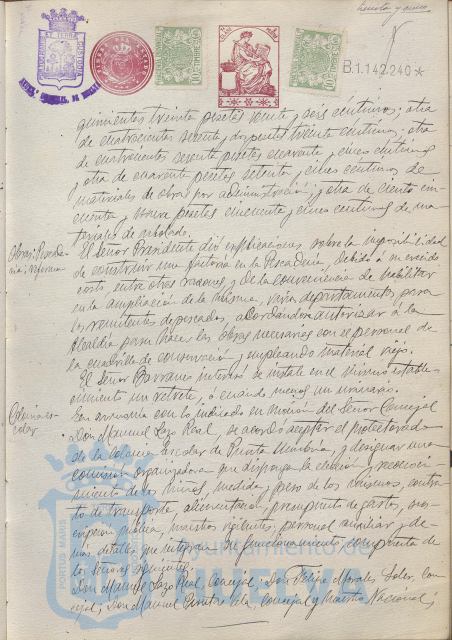 sesenta y cinco
B.1.142.240*
quinientas treinta pesetas veinte y seis céntimos; otra
de cuatrocientas sesenta, dos pesetas veinte céntimos; otra
de cuatrocientas sesenta pesetas cuarenta y cinco céntimos
y otra de cuarenta pesetas setenta y cinco céntimos de
materiales de obras por administración; y otra de ciento cin-
cuenta y nueve pesetas cincuenta y cinco céntimos de ma-
teriales de arbolado.
Obras: Pescade-
ría: reforma
El Señor Presidente dió explicaciones sobre la imposibilidad
de construir una factoría en la Pescadería, debido a su crecido
costo entre otras razones, y de la conveniencia de habilitar
en la ampliación de la misma, varios departamentos para
los remitentes de pescados, acordándose autorizar a la
Alcaldía para hacer las obras necesarias con el personal de
la cuadrilla de conservación y empleando material viejo.
El Señor Barranco interesó se instale en el mismo estable-
cimiento un retrete, o cuando menos un urinario.
Colonia es-
colar
En armonía con lo indicado en moción del Señor Concejal
Don Manuel Lazo Real, se acordó aceptar el protectorado
de la Colonia Escolar de Punta Umbría, y designar una
comisión organizadora que disponga la elección y reconoci-
miento de los niños, medida y peso de los mismos, contra-
to de transporte, alimentación, presupuesto de gastos, sus-
cripción pública, maestros vigilantes, personal auxiliar y de-
más detalles que integran su funcionamiento, compuesta de
los señores siguientes:
Don Manuel Lazo Real, Concejal; Don Felipe Morales Soler, Con-
cejal; Don Manuel Concejal y Maestro Nacional;
PORTUS MARIS
Ayuntamiento de
HUELVA